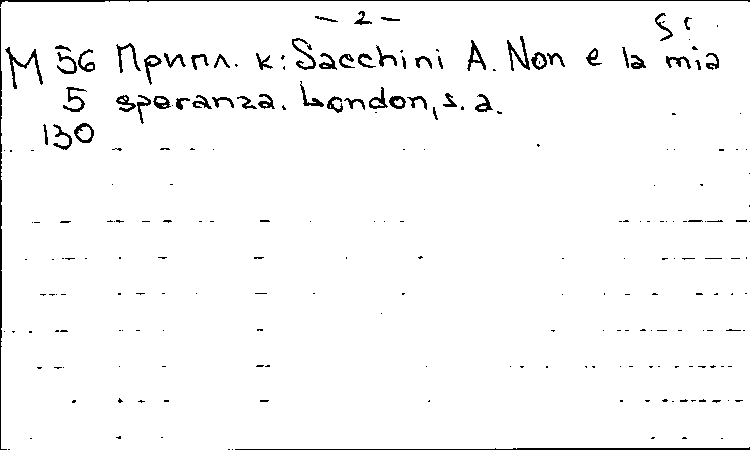 — 2 —
М 56 Припл. к: Sacchini A. Non e la mia
5 speranza. London, s. a.
130